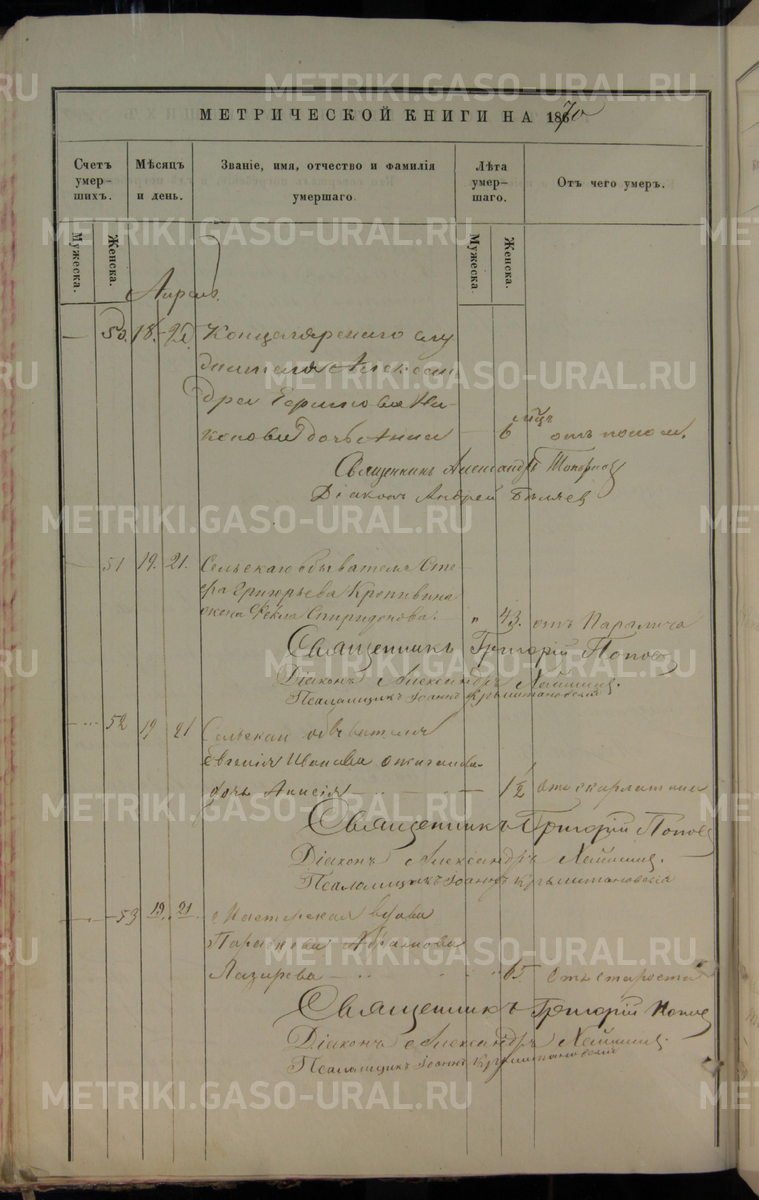 METRIKI.GASO-URAL.RU
МЕТРИЧЕСКОЙ КНИГИ НА 1870
Счетъ умер-шихъ.
Мѣсяцъ и день.
Званіе, имя, отчество и фамилія умершаго.
Лѣта умер-шаго.
Отъ чего умеръ.
Мужеска.
Женска.
Мужеска.
Женска.
Апрѣль.
— 50. 18. 20. Канцелярскаго слу
жителя Алексан
дра Ефимова
дочь Анна — 6 мцъ отъ
Священникъ Александръ
Діаконъ Андрей Бѣляев
— 51 19. 21. Сельскаго обывателя
Григорьева Кропивина
жена Фекла Спиридонова. " 43. отъ Паралича
Священникъ Григорій Попов
Діаконъ Александръ
Псаломщикъ Іоаннъ
— 52 19 21 Сельскаго обывателя
Евгенія Иванова
дочь Анисія — 1½ отъ скарлатины
Священникъ Григорій Попов
Діаконъ Александръ
Псаломщикъ Іоаннъ
— 53 19. 21. Мастерская вдова
Параскева Абрамова
Лазарева — " 65. Отъ старости
Священникъ Григорій Попов
Діаконъ Александръ
Псаломщикъ Іоаннъ